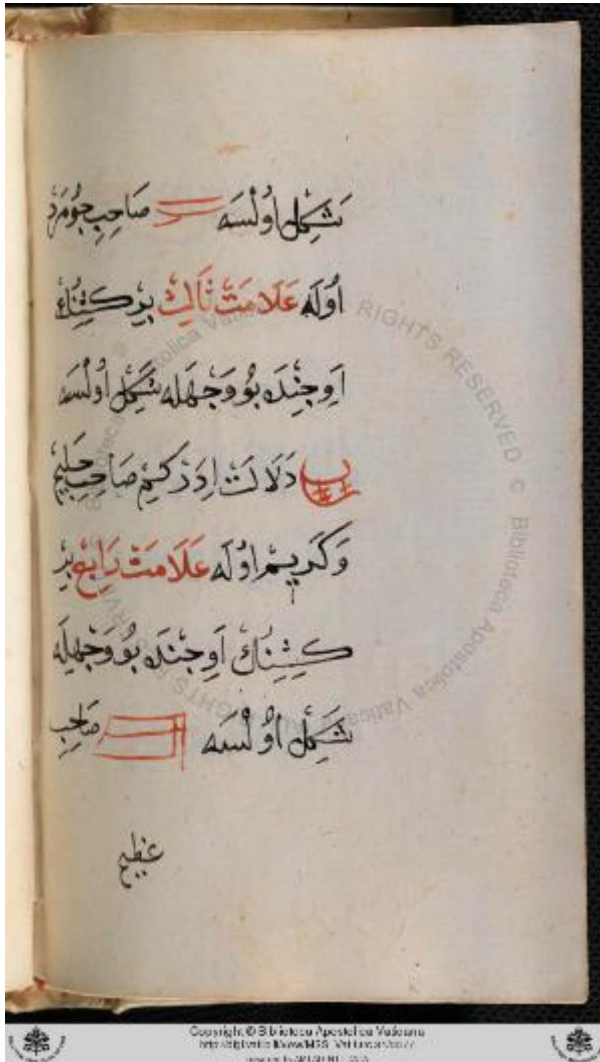 شَكِلْ اُولْسَه صَاحِبِ جُومَرْدْ
اُولَه عَلَامَتْ ثَالِثْ بِرْ كَشِنُكْ
اَوِجِنْدَه بُو وَجْهَله شَكِلْ اُولْسَه
دَلَالَتْ اِدَرْ كِمْ صَاحِبِ حَلِيمْ
وَكَرِيمْ اوُلَه عَلَامَتْ رَابِعْ بِرْ
كَشِنُكْ اَوِجِنْدَه بُو وَجْهِلَه
شَكِلْ اُولْسَه صَاحِبِ
عَظِيمْ
RIGHTS RESERVED © Biblioteca Apostolica Vaticana
Copyright © Biblioteca Apostolica Vaticana